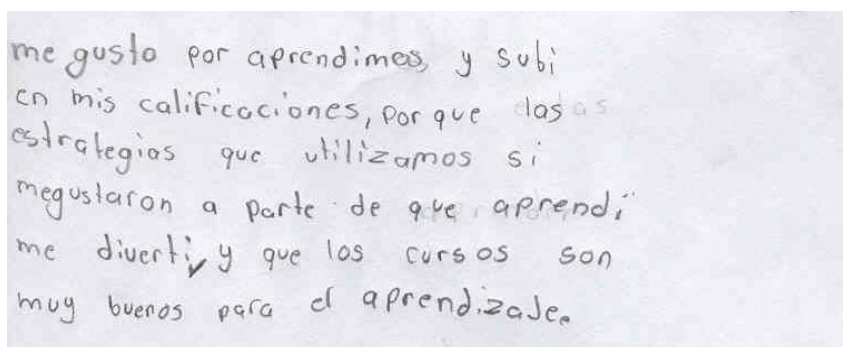 me gusto por aprendimos, y subi
en mis calificaciones, por que las
estrategias que utilizamos si
megustaron a parte de que aprendi
me diverti, y que los cursos son
muy buenos para el aprendizaje.